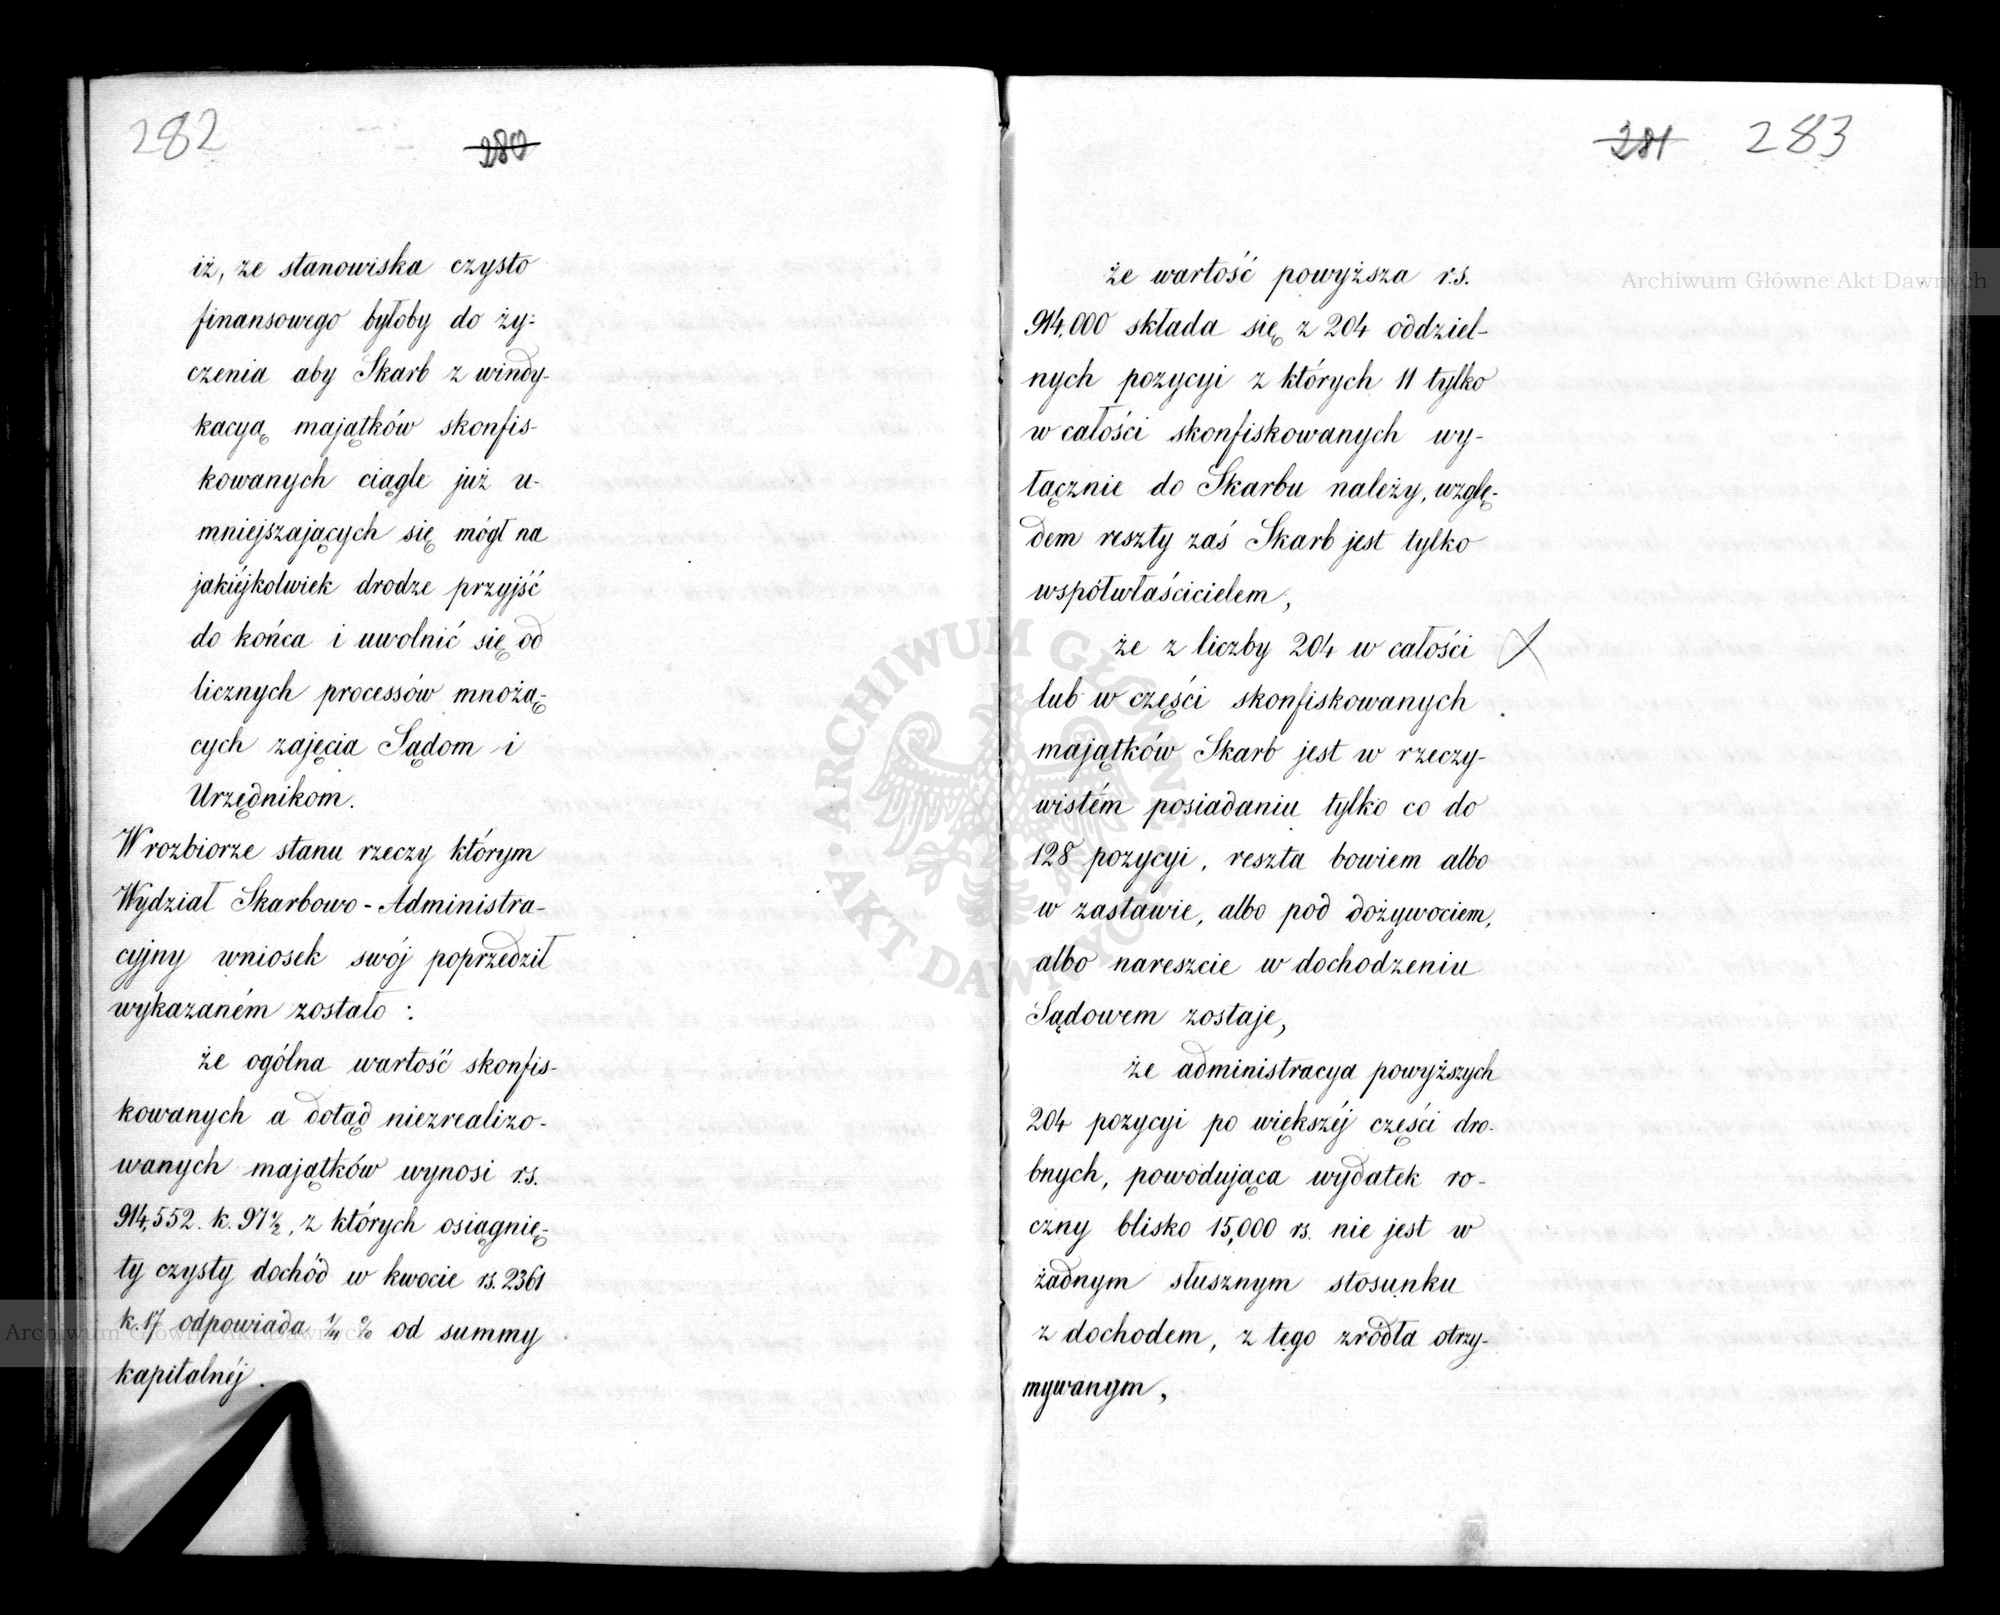 282
280
iż, ze stanowiska czysto
finansowego byłoby do ży-
czenia aby Skarb z windy-
kacyą majątków skonfis-
kowanych ciągle już u-
mniejszających się mógł na
jakiéjkolwiek drodze przyjść
do końca i uwolnić się od
licznych processów mnożą-
cych zajęcia Sądom i
Urzędnikom.
W rozbiorze stanu rzeczy którym
Wydział Skarbowo-Administra-
cyjny wniosek swój poprzedził
wykazaném zostało :
że ogólna wartość skonfis-
kowanych a dotąd niezrealizo-
wanych majątków wynosi r.s.
914,552. k. 97½, z których osiągnię-
ty czysty dochód w kwocie rs. 2361
k. 17 odpowiada ¼ % od summy
kapitalnéj.
281 283
że wartość powyższa r.s.
914,000 składa się z 204 oddziel-
nych pozycyi z których 11 tylko
w całości skonfiskowanych wy-
łącznie do Skarbu należy, wzglę-
dem reszty zaś Skarb jest tylko
współwłaścicielem,
że z liczby 204 w całości
lub w części skonfiskowanych
majątków Skarb jest w rzeczy-
wistém posiadaniu tylko co do
128 pozycyi, reszta bowiem albo
w zastawie, albo pod dożywociem,
albo nareszcie w dochodzeniu
Sądowem zostaje,
że administracya powyższych
204 pozycyi po większéj części dro-
bnych, powodująca wydatek ro-
czny blisko 15,000 rs. nie jest w
żadnym słusznym stosunku
z dochodem, z tego zrodła otrzy-
mywanym,
Archiwum Główne Akt Dawnych
Archiwum Główne Akt Dawnych
ARCHIWUM GŁÓWNE AKT DAWNYCH